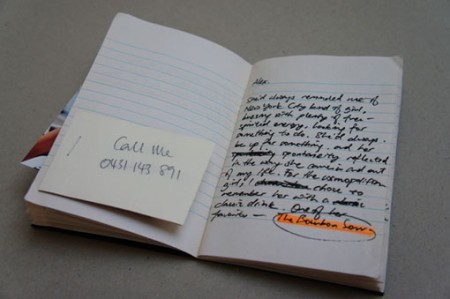 Call Me
0431 143 891
Alex.
She'd always reminded me of
New York City kind of girl.
with plenty of free-
spirited energy. Looking for
something to do. She'd always
be up for something. and her
spontaneity reflected
in the way she came in and out
of my life. For the cosmopolitan
girl, I chose to
remember her with a
classic drink. One of her
favorites —
The Bourbon Sour.